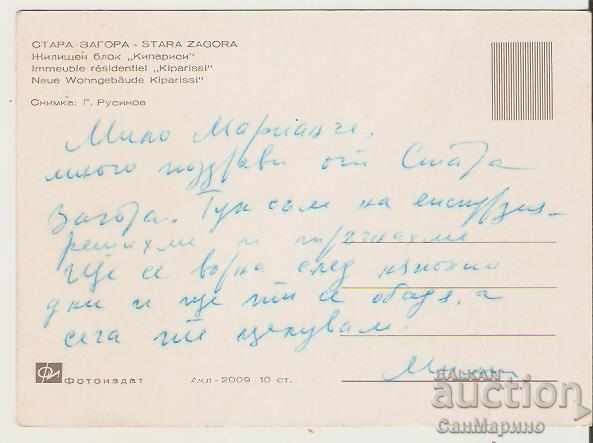 СТАРА ЗАГОРА - STARA ZAGORA
Жилищен блок „Кипариси"
Immeuble résidentiel „Kiparissi"
Neue Wohngebäude Kiparissi"
Снимка: Г. Русинов
Мило Марианче,
много поздрави от Стара
Загора. Тук съм на екскурзия
решихме и тръгнахме
Ще се върна след няколко
дни и ще ти се обадя, а
сега те целувам.
Фотоиздат
Акл-2009 10 ст.
BALKAN
auction
СанМарино